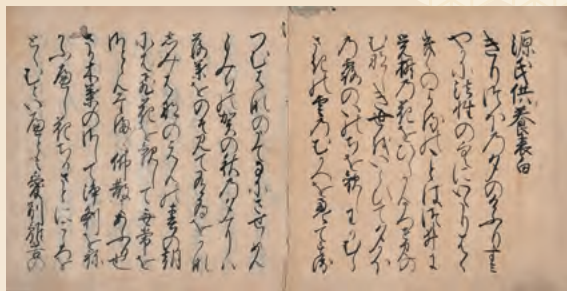 源氏供養表白
きりつほの夕のけふりすみ
やかに法性の空にいたりはゝ
き木のよるのことはつゐに
覚樹の花をひらかんうつせみの
むなしき世をいとひて夕かほ
の露のいのちを観しわかむら
さきの雲のむかへをえてすゑ
つむはなのうてなにさせしめん
もみちの賀の秋の夕へには
落葉をのそみて有為をかな
しみはなのえんの春の朝
には飛花を観して無常を
さとらん 仏教にあふ
さか木葉のさして浄刹を祢
かふへし花ちるさとに心を
とゝむといへとも愛別離苦の